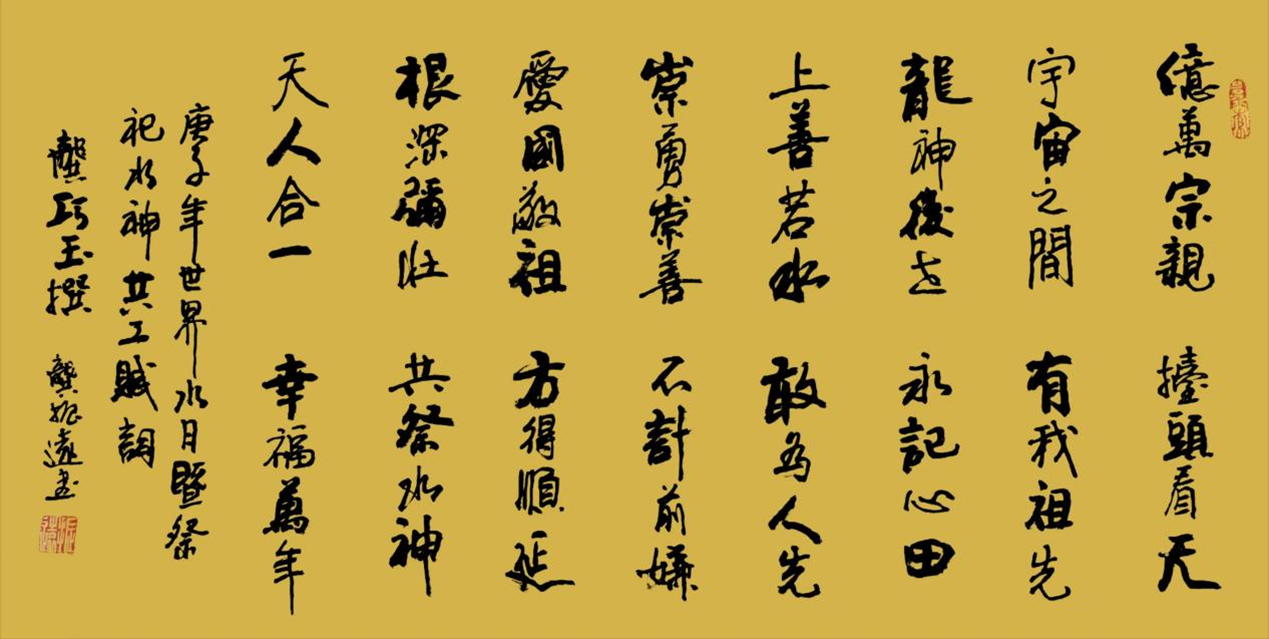 億萬宗親 擡頭看天
宇宙之間 有我祖先
龍神後世 永記心田
上善若水 敢為人先
崇勇崇善 不計前嫌
愛國敬祖 方得順延
根深彌壯 共祭水神
天人合一 幸福萬年
庚子年世界水日暨祭
祀水神共工賦詞
龔巧玉撰 龔振遠書